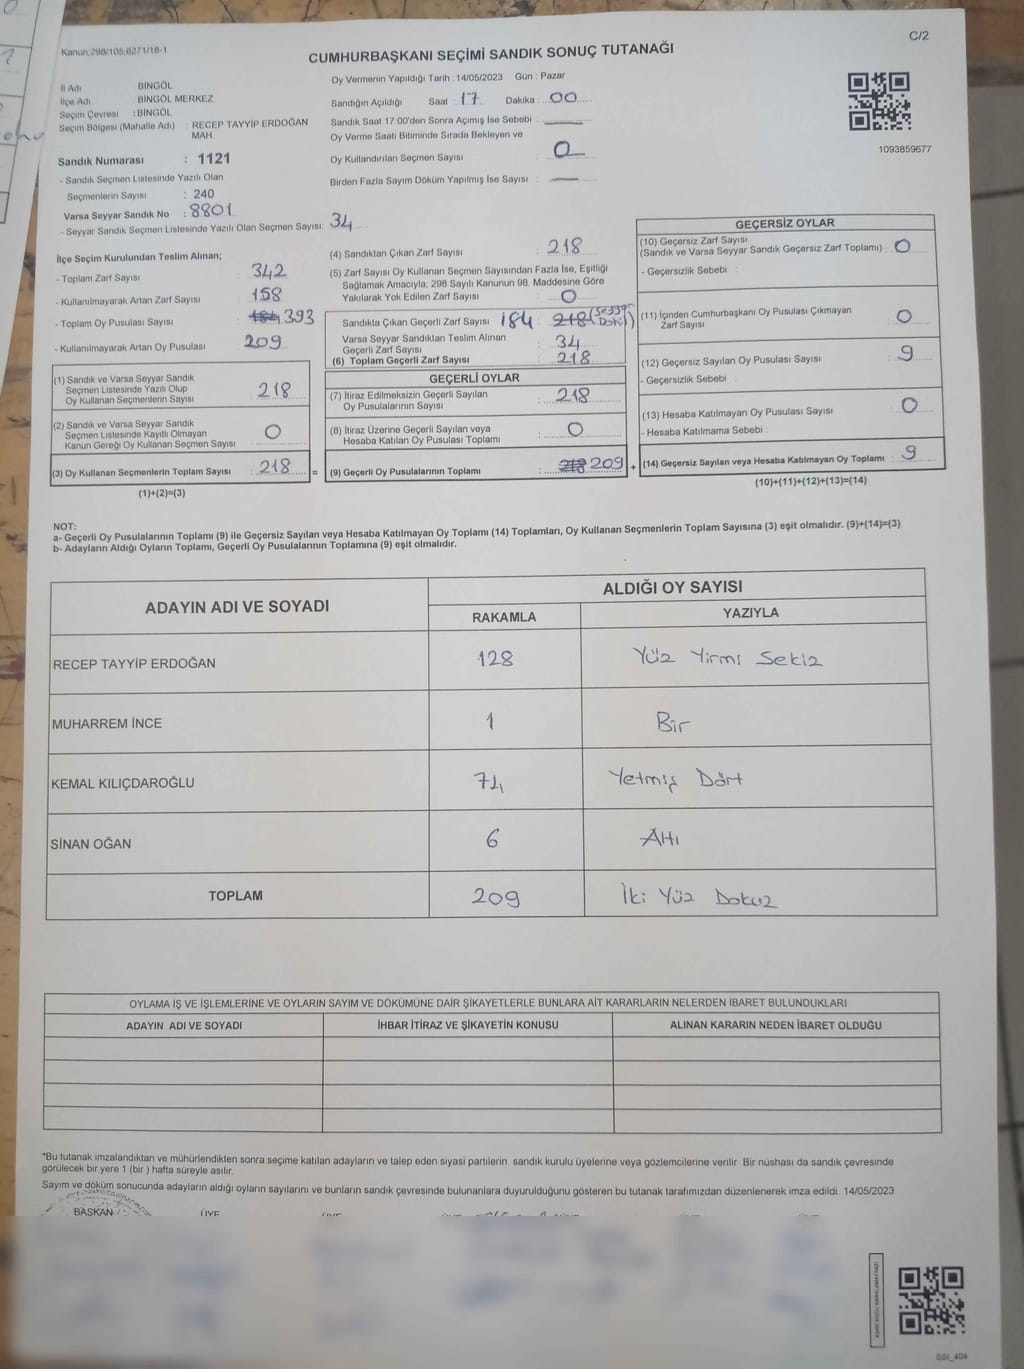 C/2
Kanun,298/105,6271/18-1
CUMHURBAŞKANI SEÇİMİ SANDIK SONUÇ TUTANAĞI
İl Adı BİNGÖL
İlçe Adı BİNGÖL MERKEZ
Seçim Çevresi : BİNGÖL
Seçim Bölgesi (Mahalle Adı) : RECEP TAYYİP ERDOĞAN MAH.
Sandık Numarası : 1121
- Sandık Seçmen Listesinde Yazılı Olan
Seçmenlerin Sayısı : 240
Varsa Seyyar Sandık No : 8801
- Seyyar Sandık Seçmen Listesinde Yazılı Olan Seçmen Sayısı: 34
Oy Vermenin Yapıldığı Tarih : 14/05/2023 Gün : Pazar
Sandığın Açıldığı Saat : 17 Dakika : 00
Sandık Saat 17:00'den Sonra Açımış İse Sebebi :
Oy Verme Saati Bitiminde Sırada Bekleyen ve
Oy Kullandırılan Seçmen Sayısı : 0
Birden Fazla Sayım Döküm Yapılmış İse Sayısı : —
1093859677
İlçe Seçim Kurulundan Teslim Alınan;
- Toplam Zarf Sayısı : 342
- Kullanılmayarak Artan Zarf Sayısı : 158
- Toplam Oy Pusulası Sayısı : 184 393
- Kullanılmayarak Artan Oy Pusulası : 209
(1) Sandık ve Varsa Seyyar Sandık
Seçmen Listesinde Yazılı Olup
Oy Kullanan Seçmenlerin Sayısı : 218
(2) Sandık ve Varsa Seyyar Sandık
Seçmen Listesinde Kayıtlı Olmayan
Kanun Gereği Oy Kullanan Seçmen Sayısı : 0
(3) Oy Kullanan Seçmenlerin Toplam Sayısı : 218 =
(1)+(2)=(3)
(4) Sandıktan Çıkan Zarf Sayısı : 218
(5) Zarf Sayısı Oy Kullanan Seçmen Sayısından Fazla İse, Eşitliği
Sağlamak Amacıyla; 298 Sayılı Kanunun 98. Maddesine Göre
Yakılarak Yok Edilen Zarf Sayısı : 0
Sandıkta Çıkan Geçerli Zarf Sayısı 184 218
Varsa Seyyar Sandıktan Teslim Alınan
Geçerli Zarf Sayısı : 34
(6) Toplam Geçerli Zarf Sayısı : 218
GEÇERLİ OYLAR
(7) İtiraz Edilmeksizin Geçerli Sayılan
Oy Pusulalarının Sayısı : 218
(8) İtiraz Üzerine Geçerli Sayılan veya
Hesaba Katılan Oy Pusulası Toplamı : 0
(9) Geçerli Oy Pusulalarının Toplamı : 218 209 +
GEÇERSİZ OYLAR
(10) Geçersiz Zarf Sayısı
(Sandık ve Varsa Seyyar Sandık Geçersiz Zarf Toplamı) : 0
- Geçersizlik Sebebi :
(11) İçinden Cumhurbaşkanı Oy Pusulası Çıkmayan
Zarf Sayısı : 0
(12) Geçersiz Sayılan Oy Pusulası Sayısı : 9
- Geçersizlik Sebebi :
(13) Hesaba Katılmayan Oy Pusulası Sayısı : 0
- Hesaba Katılmama Sebebi :
(14) Geçersiz Sayılan veya Hesaba Katılmayan Oy Toplamı : 9
(10)+(11)+(12)+(13)=(14)
NOT:
a- Geçerli Oy Pusulalarının Toplamı (9) ile Geçersiz Sayılan veya Hesaba Katılmayan Oy Toplamı (14) Toplamları, Oy Kullanan Seçmenlerin Toplam Sayısına (3) eşit olmalıdır. (9)+(14)=(3)
b- Adayların Aldığı Oyların Toplamı, Geçerli Oy Pusulalarının Toplamına (9) eşit olmalıdır.
ADAYIN ADI VE SOYADI ALDIĞI OY SAYISI
RAKAMLA YAZIYLA
RECEP TAYYİP ERDOĞAN 128 Yüz Yirmi Sekiz
MUHARREM İNCE 1 Bir
KEMAL KILIÇDAROĞLU 74 Yetmiş Dört
SİNAN OĞAN 6 Altı
TOPLAM 209 İki Yüz Dokuz
OYLAMA İŞ VE İŞLEMLERİNE VE OYLARIN SAYIM VE DÖKÜMÜNE DAİR ŞİKAYETLERLE BUNLARA AİT KARARLARIN NELERDEN İBARET BULUNDUKLARI
ADAYIN ADI VE SOYADI İHBAR İTİRAZ VE ŞİKAYETİN KONUSU ALINAN KARARIN NEDEN İBARET OLDUĞU
*Bu tutanak imzalandıktan ve mühürlendikten sonra seçime katılan adayların ve talep eden siyasi partilerin sandık kurulu üyelerine veya gözlemcilerine verilir. Bir nüshası da sandık çevresinde
görülecek bir yere 1 (bir ) hafta süreyle asılır.
Sayım ve döküm sonucunda adayların aldığı oyların sayılarını ve bunların sandık çevresinde bulunanlara duyurulduğunu gösteren bu tutanak tarafımızdan düzenlenerek imza edildi. 14/05/2023
BAŞKAN ÜYE
SS1_404